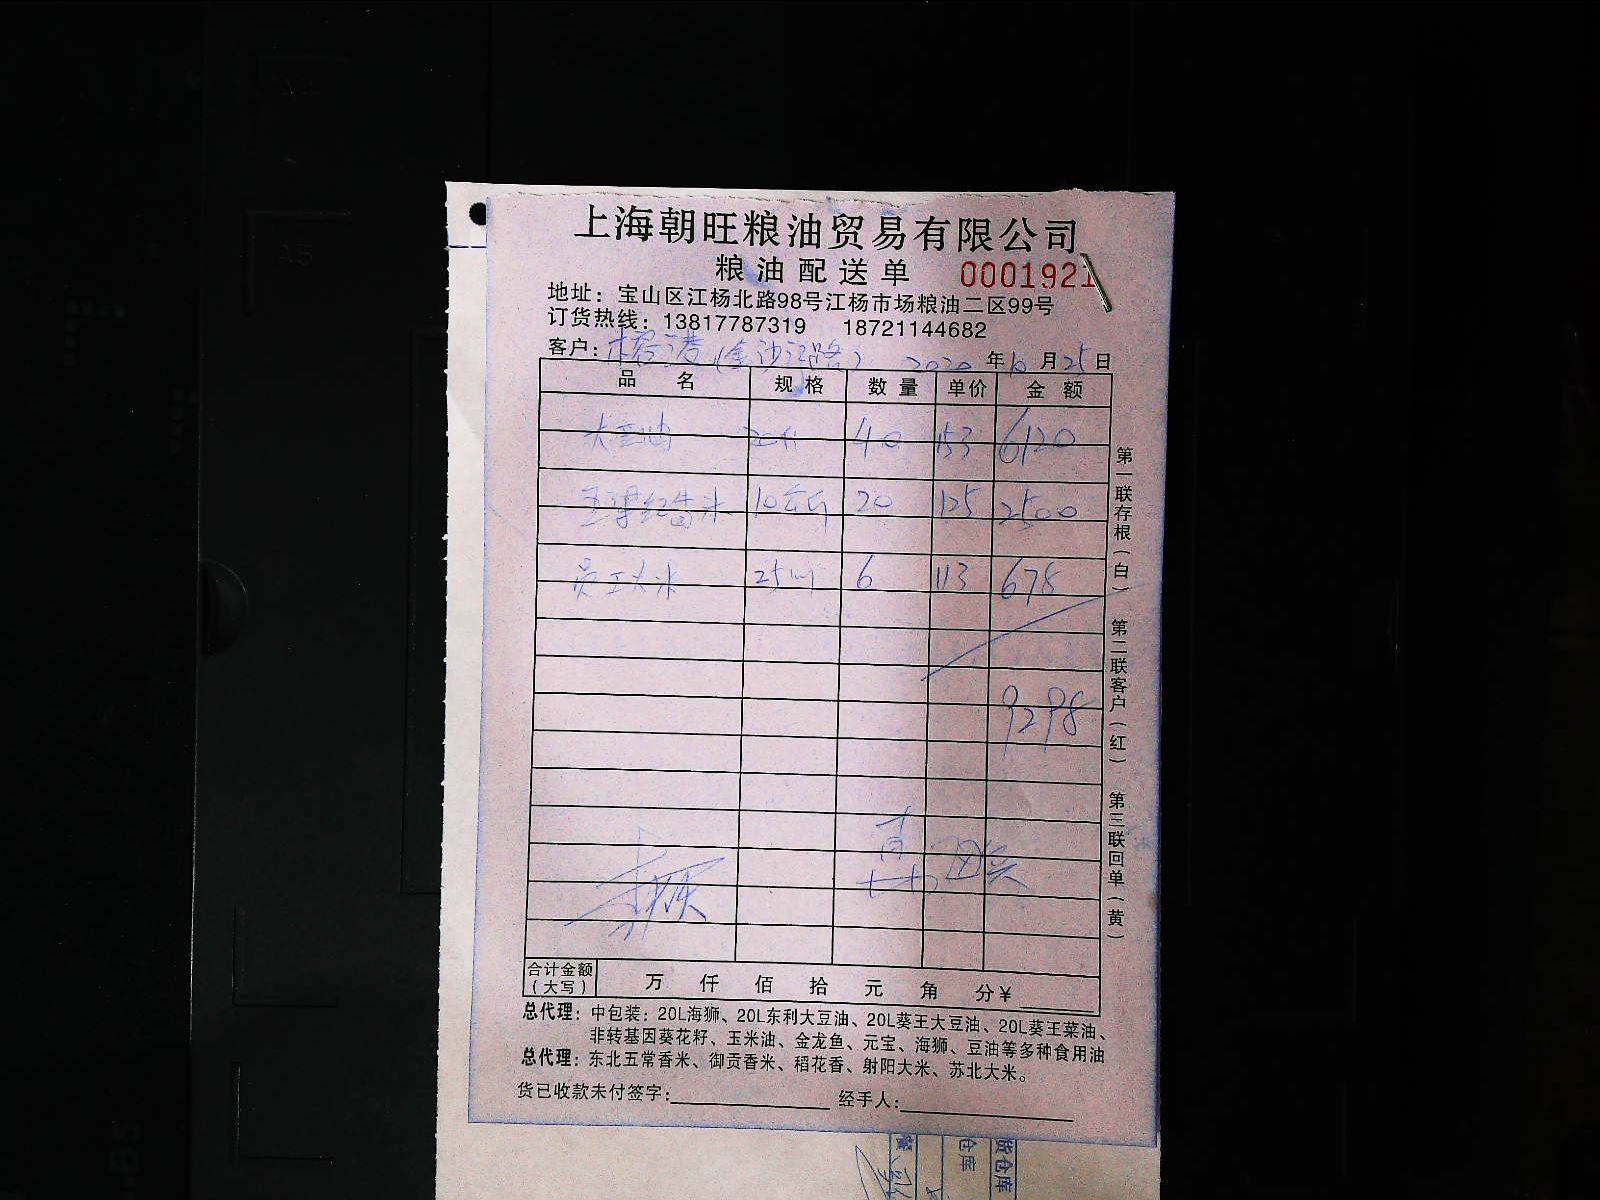 上海朝旺粮油贸易有限公司
粮油配送单 0001921
地址：宝山区江杨北路98号江杨市场粮油二区99号
订货热线：13817787319 18721144682
客户： 港(金沙江路) 2020年10月25日
品名 规格 数量 单价 金额
大豆油 20升 40 153 6120
10公斤 20 125 2500
员工大米 25 6 113 678
9298
合计金额(大写) 万 仟 佰 拾 元 角 分¥
总代理：中包装：20L海狮、20L东利大豆油、20L葵王大豆油、20L葵王菜油、
非转基因葵花籽、玉米油、金龙鱼、元宝、海狮、豆油等多种食用油
总代理：东北五常香米、御贡香米、稻花香、射阳大米、苏北大米。
货已收款未付签字： 经手人：
第一联存根(白) 第二联客户(红) 第三联回单(黄)
仓库
货仓库